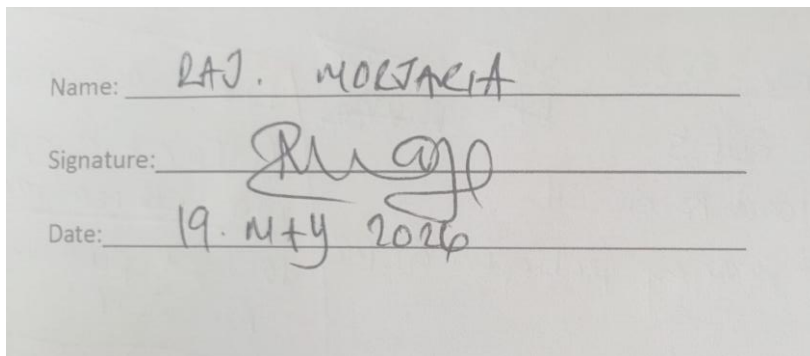 Name: RAJ. MORJARIA
Signature:
Date: 19. MAY 2026